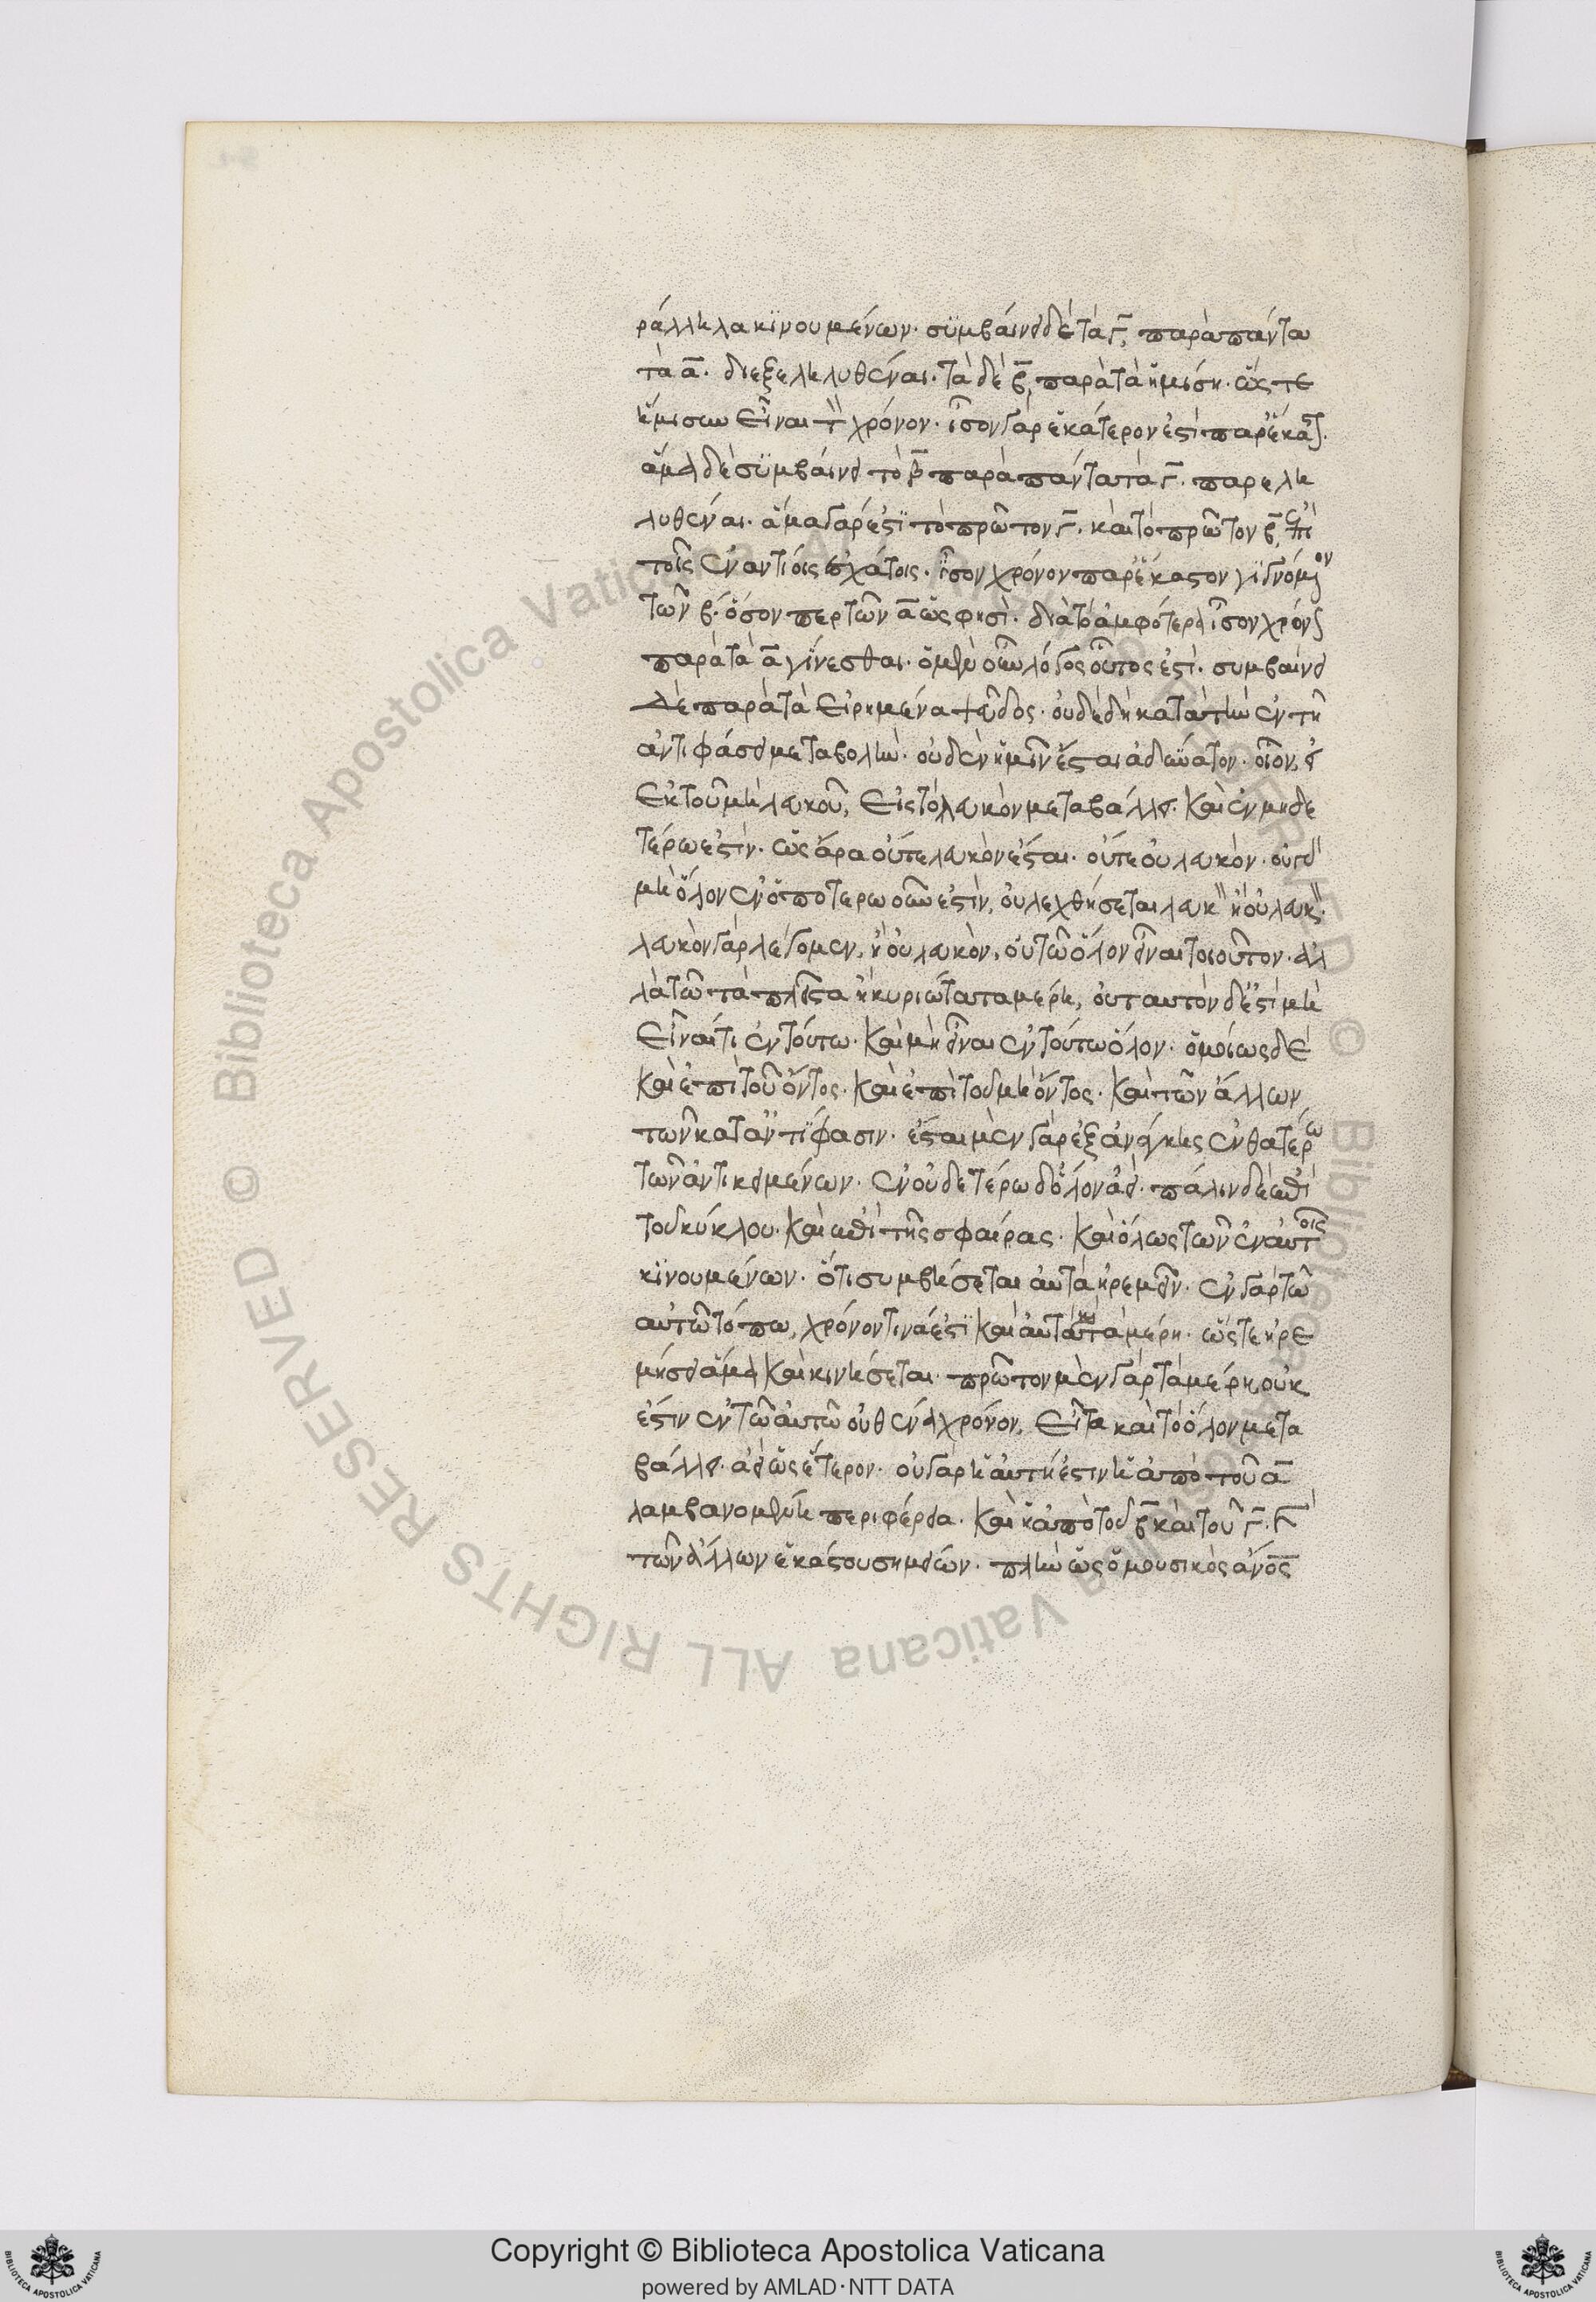 ράλληλα κϊνουμένων· συμβαίνει δὲ τὰ γ̅, παρὰ πάντα
τὰ α̅. διεξεληλυθέναι. τὰ δὲ β̅, παρὰ τὰ ἡμίση. ὥς τε
ἥμισυ εἶναι τὸν χρόνον· ἴσον γὰρ ἑκάτερον ἐστὶ παρ' ἕκαστ.
ἅμα δὲ συμβαίνει τὸ β̅ παρὰ πάντα τὰ γ̅. παρελη
λυθέναι. ἅμα γάρ ἐστϊ τὸ πρῶτον γ̅. καὶ τὸ πρῶτον β̅, ἐπὶ
τοῖς ἐναντίοις ἐσχάτοις. ἴσον χρόνον παρ' ἕκαστον γιγνόμενον
τῶν β. ὅσον περ τῶν α̅ ὥς φησὶ. διὰ τὸ ἀμφότερα ἴσον χρόνον
παρὰ τὰ α̅ γίνεσθαι. ὁ μὲν οὖν λόγος οὗτος ἐστὶ. συμβαίνει
δὲ παρὰ τὰ εἰρημένα ψεῦδος. οὐδὲ δὴ κατὰ τὴν ἐν τῆ
ἀντιφάσει μεταβολὴν. οὐδὲν ἡμῖν ἔσται ἀδύνατον. οἷον, εἰ
ἐκ τοῦ μὴ λευκοῦ, εἰς τὸ λευκὸν μεταβάλλει. καὶ ἐν μηδε
τέρω ἐστὶν. ὡς ἄρα οὔτε λευκὸν ἔσται. οὔτε οὐ λευκὸν. οὐ γὰρ εἰ
μὴ ὅλον ἐν ὁποτερω οὖν ἐστὶν, οὐ λεχθήσεται λευκὸν ἢ οὐ λευκὸν.
λευκὸν γὰρ λέγομεν, ἢ οὐ λευκὸν, οὐ τῶ ὅλον εἶναι τοιοῦτον. ἀλ
λὰ τῶ τὰ πλεῖστα ἢ κυριώτατα μέρη, οὐ ταυτὸν δ' ἐστὶ μὴ
εἶναί τι ἐν τούτω. καὶ μὴ εἶναι ἐν τούτω ὅλον. ὁμοίως δὲ
καὶ ἐπὶ τοῦ ὄντος. καὶ ἐπὶ τοῦ μὴ ὄντος. καὶ τῶν ἄλλων,
τῶν κατ' ἀντϊφασιν. ἔσται μὲν γὰρ ἐξ ἀνάγκης ἐν θατέρω
τῶν ἀντικειμένων. ἐν οὐδετέρω δ' ὅλον ἀεὶ. πάλιν δὲ ἐπὶ
τοῦ κύκλου. καὶ ἐπὶ τῆς σφαίρας. καὶ ὅλως τῶν ἐν αὑτοῖς
κϊνουμένων. ὅτι συμβήσεται αὐτὰ ἠρεμεῖν. ἐν γὰρ τῶ
αὐτῶ τόπω, χρόνον τινά ἐστϊ καὶ αὐτὰ καὶ τὰ μέρη. ὥστε ἠρε
μήσει ἅμα καὶ κινήσεται. πρῶτον μὲν γὰρ τὰ μέρη, οὐκ
ἔστιν ἐν τῶ αὐτῶ οὐθένα χρόνον, εἶτα καὶ τὸ ὅλον μετα
βάλλει. ἀεὶ ὡς ἕτερον. οὐ γὰρ ἡ αὐτή ἐστιν ἡ ἀπὸ τοῦ α̅
λαμβανομένη περιφέρεια. καὶ ἡ ἀπὸ τοῦ β̅ καὶ τοῦ γ̅. καὶ
τῶν ἄλλων ἑκάστου σημείων. πλὴν ὡς ὁ μουσικὸς ἄνος